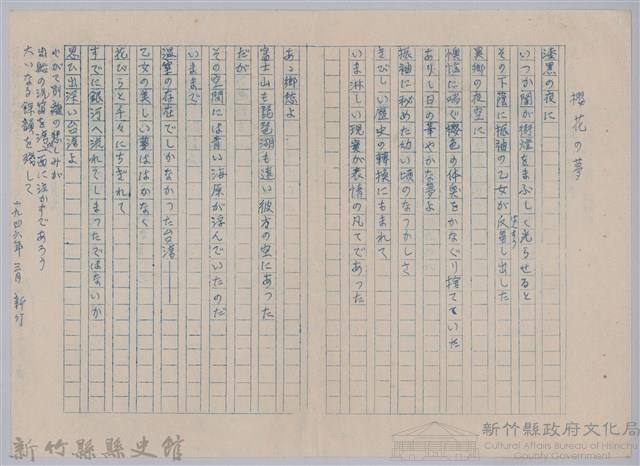 櫻花の夢
漆黒の夜に
いつか闇が街燈をまぶしく光らせると
その下蔭に振袖の乙女が反芻し出した
はんすう
異郷の夜空に
懊悩に喘ぐ櫻色の体臭をかなぐり捨てていた
ありし日の華やかな夢よ
振袖に秘めた幼い頃のなつかしさ
きびしい歴史の轉換にもまれて
いま淋しい現実が表情の凡てであった
あゝ郷愁よ
富士山も琵琶湖も遠い彼方の空にあった
だが
その空間には青い海原が浮んでいたのだ
いままで
温室の存在でしかなかった台湾――
乙女の美しい夢ははかなく
花びらと千々にちぎれて
すでに銀河へ流れてしまったではないか
思ひ出深い台湾よ
やがて別離の悲しみが
出船の汽笛を港一面に泣かすであろう
大いなる餘韻を残して
一九四六年 三月 新竹
新竹縣縣史館
新竹縣政府文化局
Cultural Affairs Bureau of Hsinchu
County Government